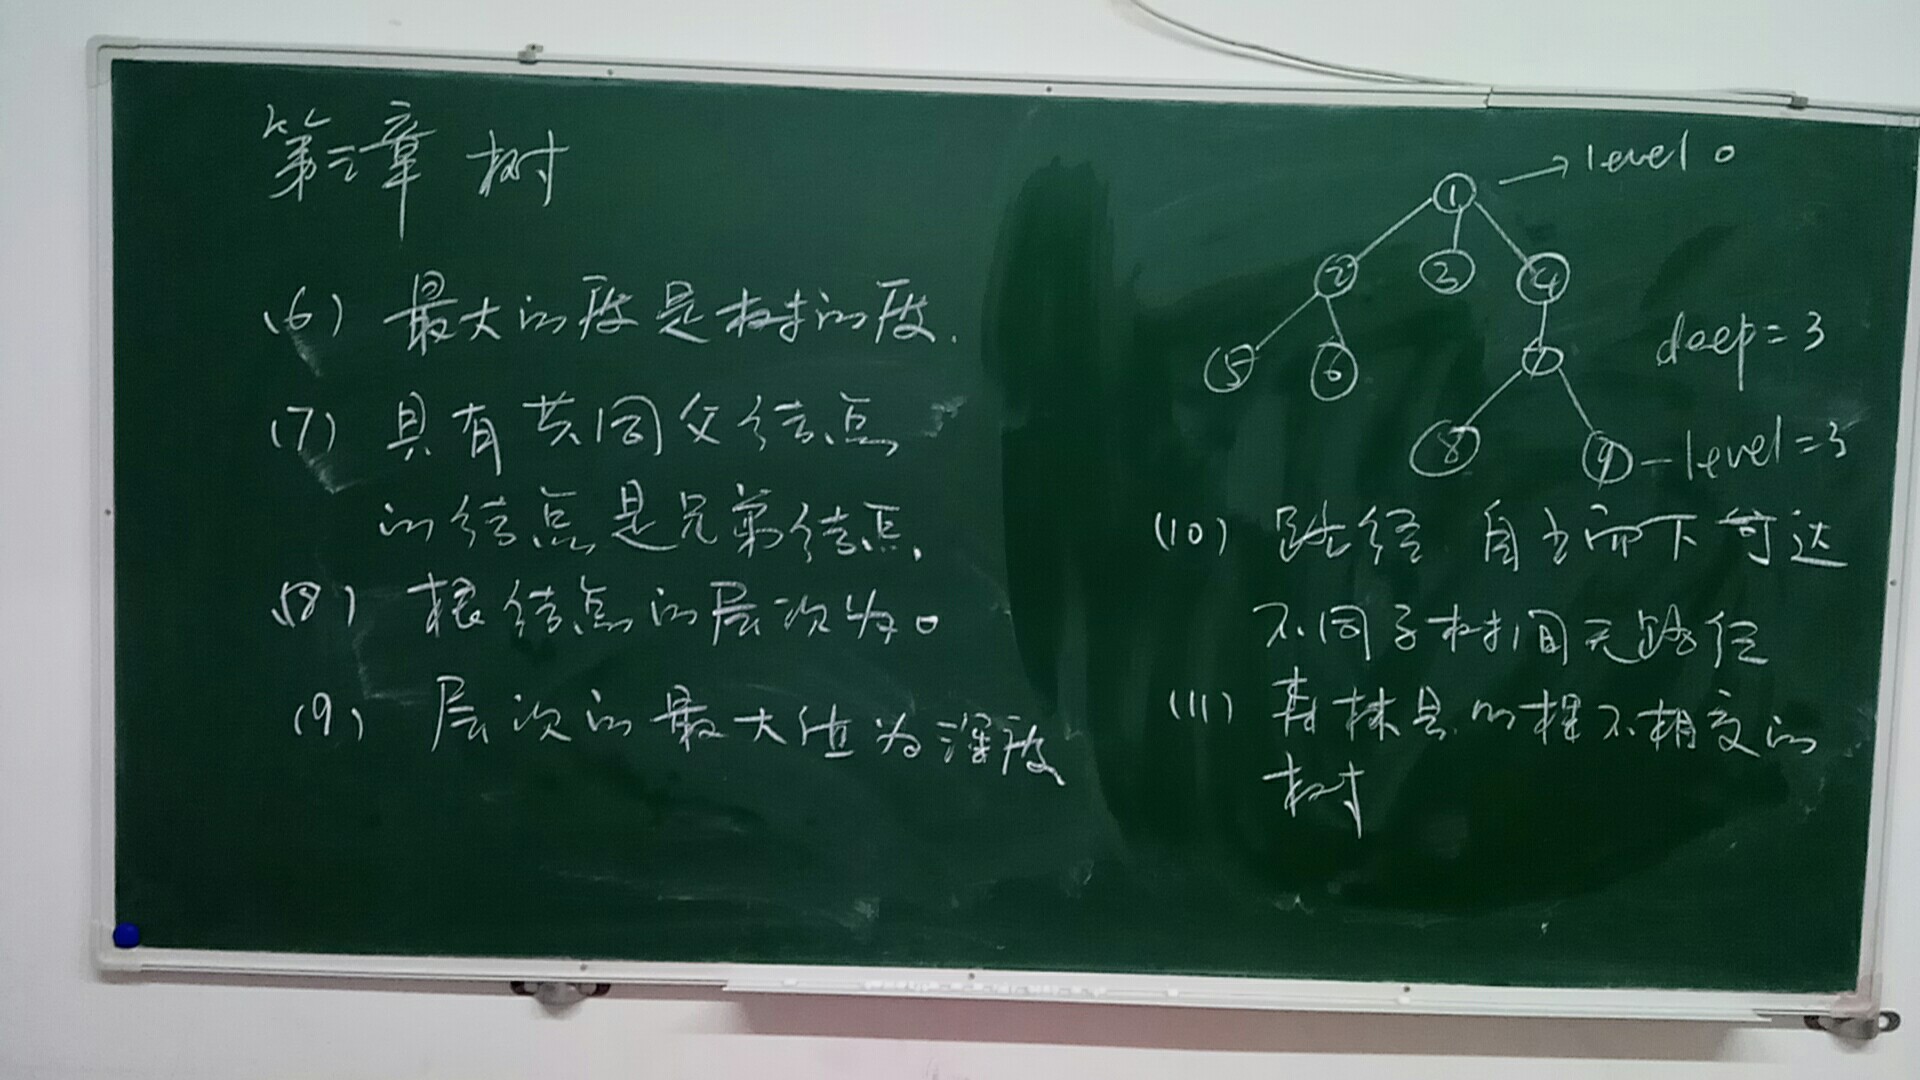 第三章 树
(6) 最大的度是树的度.
(7) 具有共同父结点
的结点是兄弟结点.
(8) 根结点的层次为0
(9) 层次的最大值为深度
1 → level 0
2 3 4
deep=3
5 6 7
8 9 — level=3
(10) 路径 自上而下可达
不同子树间无路径
(11) 森林是 的棵不相交的
树